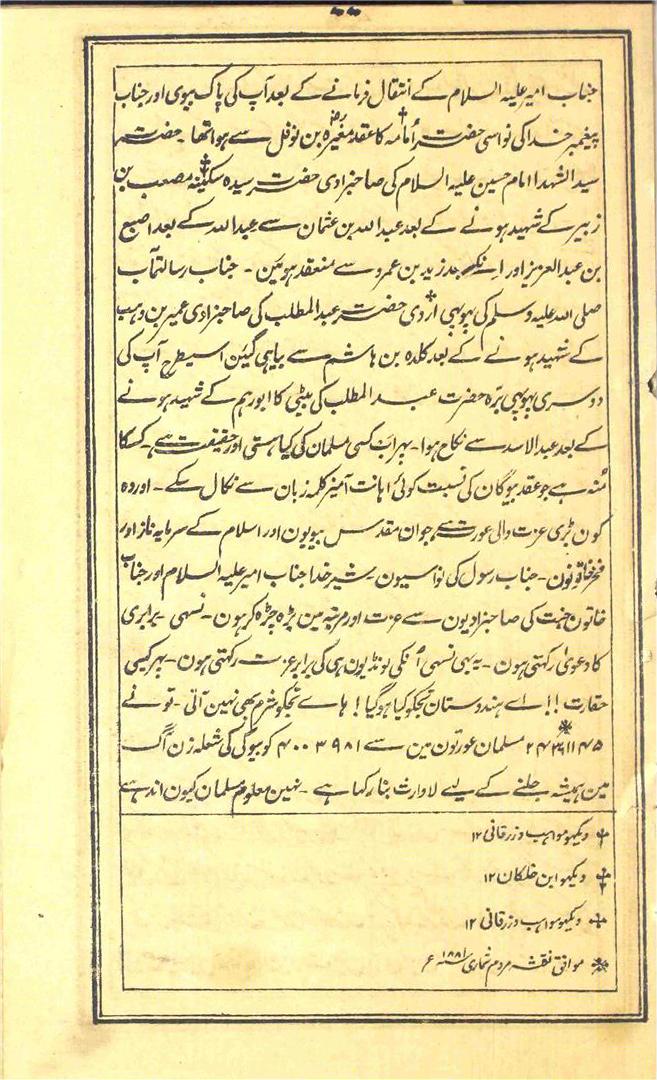 جناب امیر علیہ السلام کے انتقال فرمانے کے بعد آپ کی پاک بیوی اور جناب
پیغمبر خدا کی نواسی حضرت اُمامہ† کا عقد مغیرہؓ بن نوفل سے ہوا تھا ۔ حضرت
سید الشہدا امام حسین علیہ السلام کی صاحبزادی حضرت سیدہ سکینہ‡ مصعب بن
زبیر کے شہید ہونے کے بعد عبداللہ بن عثمان سے عبداللہ کے بعد اصبع
بن عبدالعزیز اور انکے بعد زید بن عمرو سے منعقد ہوئین ۔ جناب رسالتمآب
صلی اللہ علیہ وسلم کی پھوپھی اردی حضرت عبدالمطلب کی صاحبزادی عمیر بن وہب
کے شہید ہونے کے بعد کلدہ بن ہاشم سے بیاہی گئین اسیطرح آپ کی
دوسری پھوپھی برّہ حضرت عبد المطلب کی بیٹی کا ابورہم کے شہید ہونے
کے بعد عبدالاسد سے نکاح ہوا ۔ پھر اب کسی مسلمان کی کیا ہستی اور حقیقت ہے ۔ کسکا
مُنہ ہے جو عقد بیوگان کی نسبت کوئی اہانت آمیز کلمہ زبان سے نکال سکے ۔ اور وہ
کون بڑی عزت والی عورت ہے جو ان مقدس بیویون اور اسلام کے سرمایہ ناز اور
فخر خاتونون ۔ جناب رسول کی نواسیون شیر خدا جناب امیر علیہ السلام اور جناب
خاتون جنت کی صاحبزادیون سے عزت اور مرتبہ مین بڑہ چڑہ کر ہون ۔ نسہی برابری
کا دعویٰ رکھتی ہون ۔ یہ بھی نسہی اُنکی لونڈیون ہی کی برابر عزت رکھتی ہون ۔ پھر کیسی
حقارت !! اے ہندوستان تجکو کیا ہو گیا ! ہاے تجکو شرم بھی نہین آتی ۔ تو نے
۲۴۳۱۱۴۵ مسلمان عورتون مین سے ۴۰۰۳۹۸۱ کو بیوگی کی شعلہ زن آگ
مین ہمیشہ جلنے کے لیے لاوارث بنا رکھا ہے ۔ نہین معلوم مسلمان کیون اندھے
† دیکھو مواہب و زرقانی ۱۲
‡ دیکھو ابن خلکان ۱۲
+ دیکھو مواہب و زرقانی ۱۲
※ موافق نقشہ مردم شماری سنہ ۱۸۸۱ ء